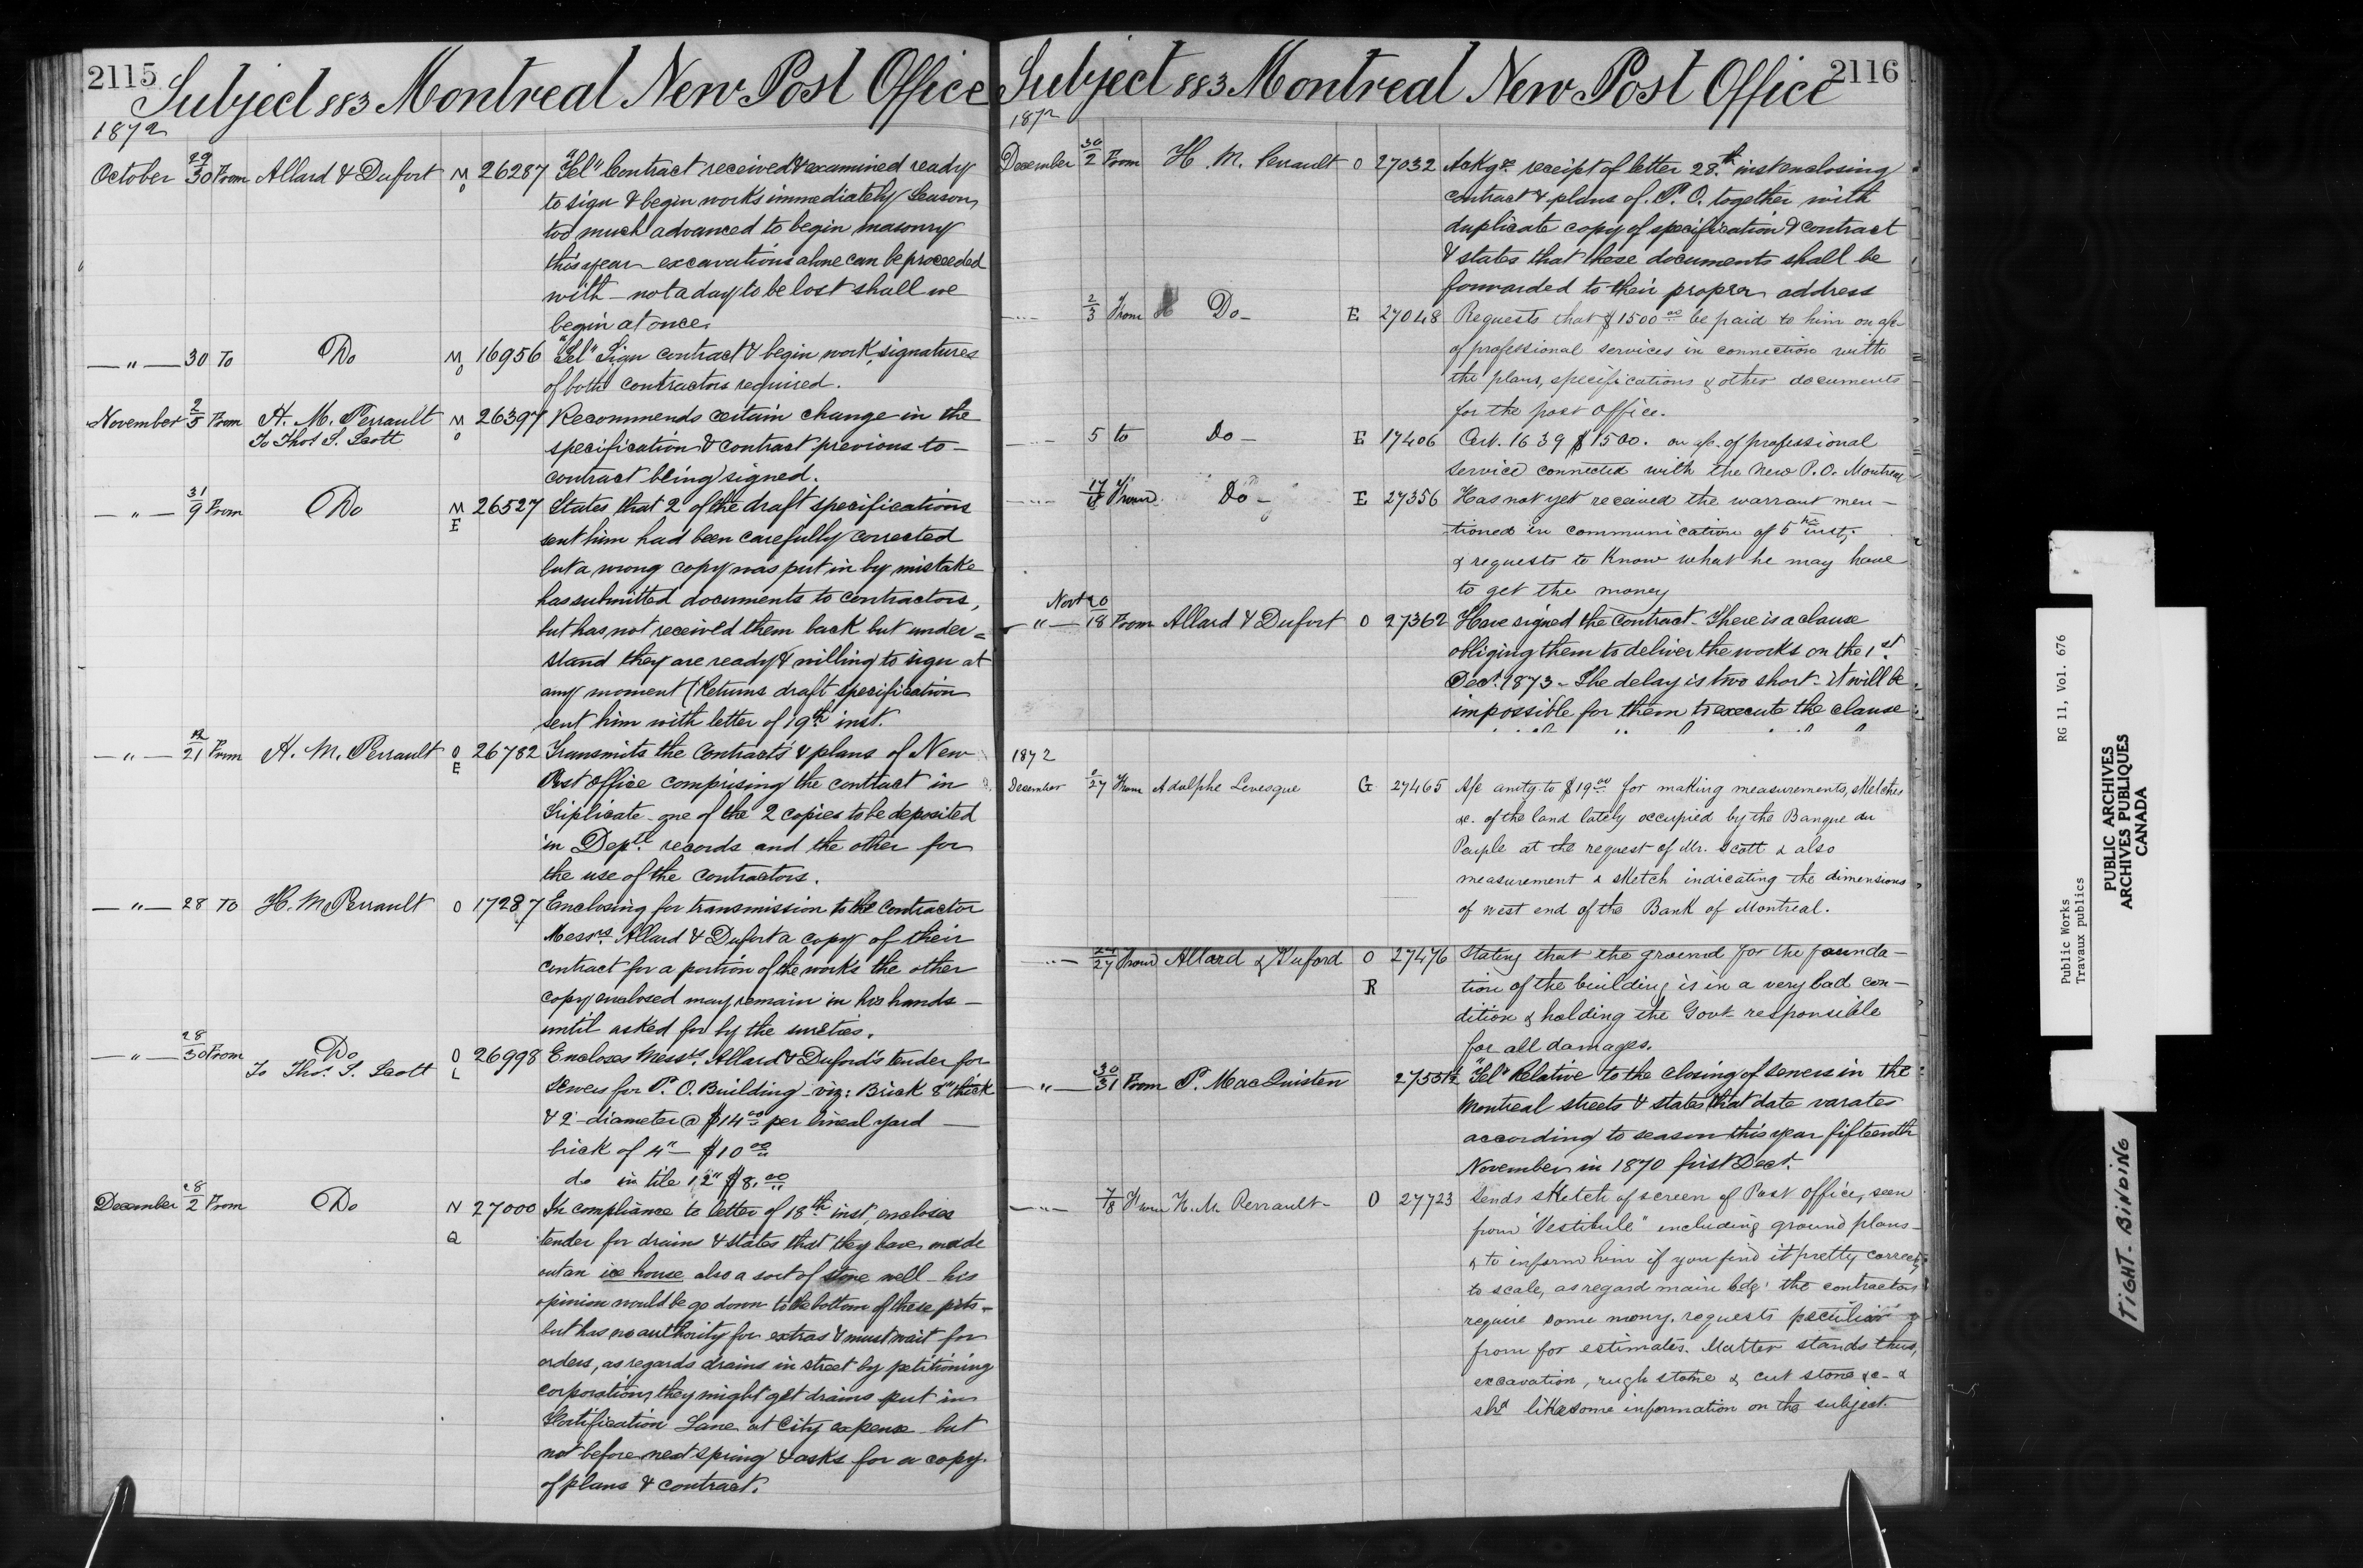 2115
Subject 883 Montreal New Post Office
1872
October 29/30 From Allard & Dufort M O 26287 "Tel" Contract received & examined ready
to sign & begin works immediately Season
too much advanced to begin masonry
this year excavations alone can be proceeded
with - not a day to be lost shall we
begin at once.
— " — 30 To Do M O 16956 "Tel" Sign contract & begin work, signatures
of both contractors required.
November 2/5 From H. M. Perrault M O 26397 Recommends certain change in the
To Thos S. Scott specification & contract previous to -
contract being signed.
— " — 31/9 From Do M E 26527 States that 2 of the draft specifications
sent him had been carefully corrected
but a wrong copy was put in by mistake
has submitted documents to contractors,
but has not received them back but under=
stand they are ready & willing to sign at
any moment (Returns draft specification
sent him with letter of 19th inst.
— " — 21 From H. M. Perrault O E 26782 Transmits the contracts & plans of New
Post Office comprising the contract in
Triplicate - one of the 2 copies to be deposited
in Deptl records and the other for
the use of the contractors.
— " — 28 To H. M. Perrault O 17287 Enclosing for transmission to the contractor
Messrs Allard & Dufort a copy of their
contract for a portion of the works the other
copy enclosed may remain in his hands -
until asked for by the sureties.
— " — 28/30 From Do O L 26998 Encloses Messrs Allard & Duford's tender for
To Thos. S. Scott sewers for P. O. Building - viz: Brick 8" thick
& 2 - diameter @ $14 00 per lineal yard —
brick of 4" — $10 00
do in tile 12" $8. 00
December 28/2 From Do N Q 27000 In compliance to letter of 18th inst, encloses
tender for drains & states that they have made
out an ice house also a sort of stone well - his
opinion would be go down to the bottom of these pits -
but has no authority for extras & must wait for
orders, as regards drains in street by petitioning
corporation, they might get drains put in
Fortification Lane at City expense but
not before next spring & asks for a copy
of plans & contract.
2116
Subject 883 Montreal New Post Office
1872
December 30/2 From H. M. Perrault O 27032 Ackgs receipt of letter 28th inst enclosing
contract & plans of P. O. together with
duplicate copy of specification & contract
& states that these documents shall be
forwarded to their proper address
2/3 From Do - E 27048 Requests that $1500 00 be paid to him on a/c
of professional services in connection with
the plans, specifications & other documents
for the post office.
5 to Do - E 17406 Cert. 1639 $1500. on a/c. of professional
service connected with the New P.O. Montreal
17/18 From Do - E 27356 Has not yet received the warrant men -
tioned in communication of 5th inst,
& requests to know what he may have
to get the money
Novr 20
— " — 18 From Allard & Dufort O 27362 Have signed the contract - There is a clause
obliging them to deliver the works on the 1st
Dect. 1873 - The delay is two short - it will be
impossible for them to execute the clause
1872
December 27 From Adolphe Levesque G 27465 A/c amtg to $19 00 for making measurements, sketches
&c. of the land lately occupied by the Banque du
Peuple at the request of Mr. Scott & also
measurement & sketch indicating the dimensions
of west end of the Bank of Montreal.
24/27 From Allard & Duford O 27476 Stating that the ground for the founda -
R tion of the building is in a very bad con -
dition & holding the Govt responsible
for all damages.
— " — 30/31 From P. MacQuisten 27551½ "Tel" Relative to the closing of sewers in the
Montreal streets & states that date varates
according to season this year fifteenth
November in 1870 first Dect.
7/8 From H. M. Perrault - O 27723 Sends sketch of screen of Post Office, seen
from "Vestibule" including ground plans -
& to inform him if you find it pretty correct,
to scale, as regard main bdg. the contractors
require some mony. requests peculiar
from for estimates. Matter stands thus,
excavation, rugh stone & cut stone &c - &
shd like some information on the subject.
Public Works RG 11, Vol. 676
Travaux publics
PUBLIC ARCHIVES
ARCHIVES PUBLIQUES
CANADA
TIGHT BINDING